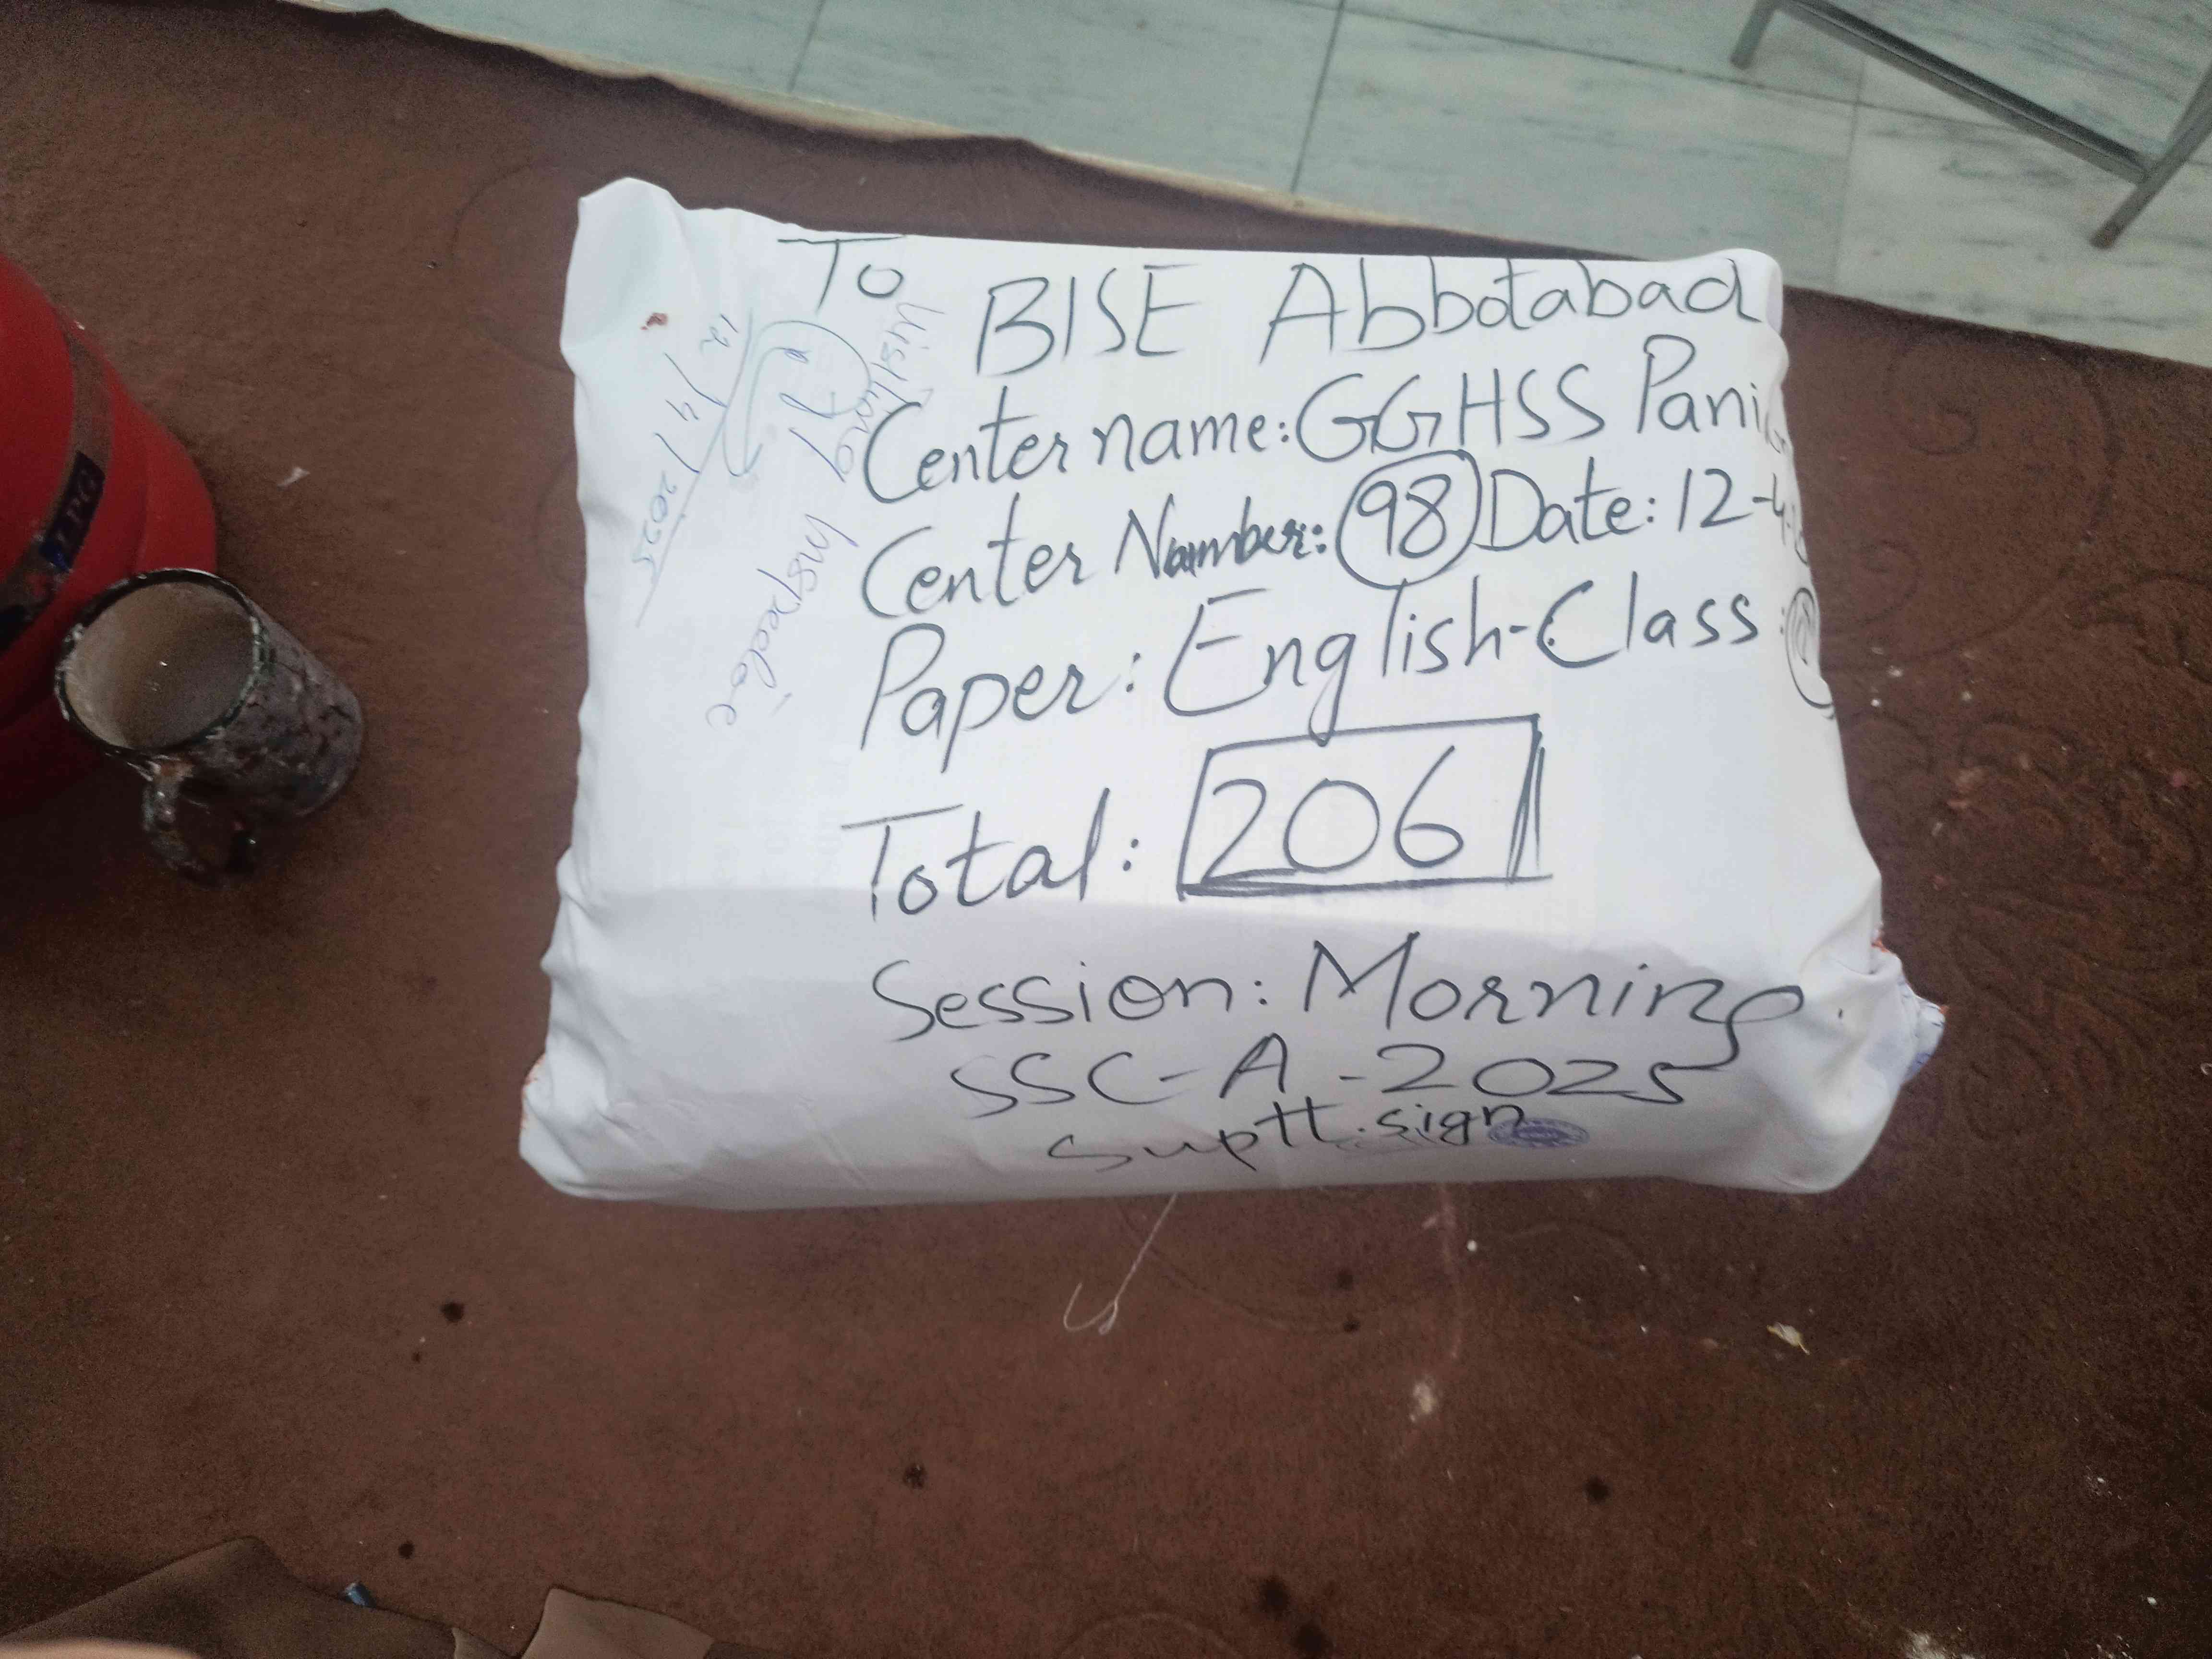 To
BISE Abbotabad
Center name: GGHSS
Center Number: 98 Date: 12-4-
Paper: English-Class:
Total: 206
Session: Morning.
SSC-A-2025
Suptt.sign
Visiting Inspector
12/4/2025
LPG